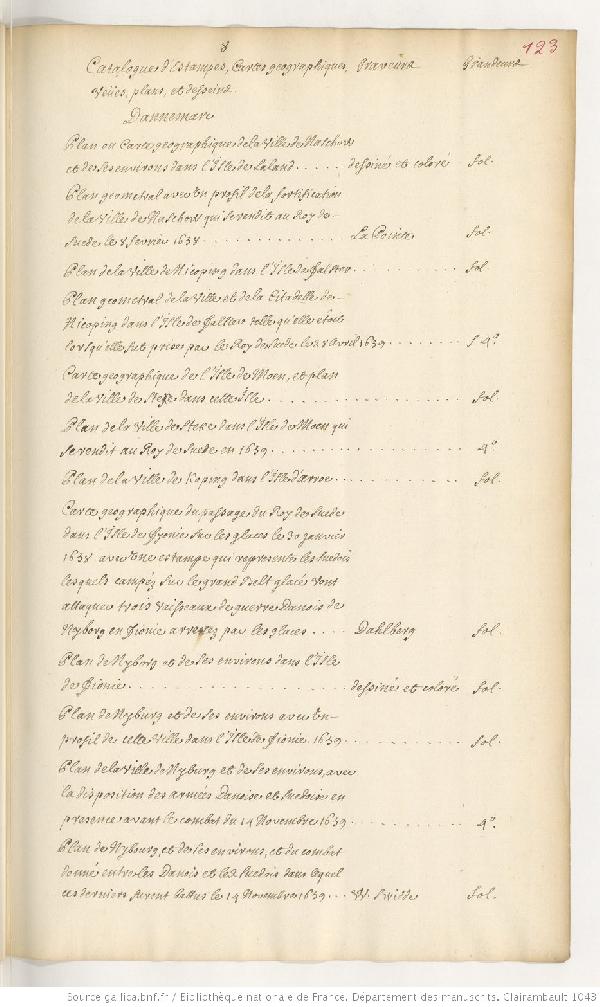 8
123
Catalogue d'Estampes, Cartes geographiques, Graveurs Grandeurs
Veües, plans, et desseins.
Dannemarc
Plan ou Carte geographique de la Ville de
et de ses environs dans l'Isle de Laland..... dessiné et coloré fol.
Plan geometral avec un profil de la fortification
de la Ville de qui se rendit au Roy de
Suede le 8 fevrier 1658............. La Pointe fol.
Plan de la Ville de Nicoping dans l'Isle de falster......... fol
Plan geometral de la Ville et de la Citadelle de
Nicoping dans l'Isle de falster telle qu'elle etoit
lorsqu'elle fut prise par le Roy de Suede le 28 Avril 1659....... f 4º.
Carte geographique de l'Isle de Moen, et plan
de la Ville de Steke dans cette Isle............. fol.
Plan de la Ville de Steke dans l'Isle de Moen qui
se rendit au Roy de Suede en 1659............ 4º.
Plan de la Ville de Koping dans l'Isle d'arroe.......... fol.
Carte geographique du passage du Roy de Suede
dans l'Isle de fionie sur les glaces le 30 janvier
1658 avec une estampe qui represente les Suedois
lesquels campéz sur le grand Belt glacé vont
attaquer trois vaisseaux de guerre Danois de
Nyborg en fionie arrestez par les glaces.... Dahlberg fol.
Plan de Nyborg et de ses environs dans l'Isle
de fionie.................. dessiné et coloré fol.
Plan de Nyburg et de ses environs avec un
profil de cette Ville dans l'Isle de fionie 1659......... fol.
Plan de la Ville de Nyburg et de ses environs, avec
la disposition des armées Danoise et Suedoise en
presence avant le combat du 14 Novembre 1659......... 4º.
Plan de Nybourg, et de ses environs, et du combat
donné entre les Danois et les Suedois dans lequel
ces derniers furent battus le 14 Novembre 1659... W. Swidde fol.
Source gallica.bnf.fr / Bibliothèque nationale de France. Département des manuscrits. Clairambault 1043